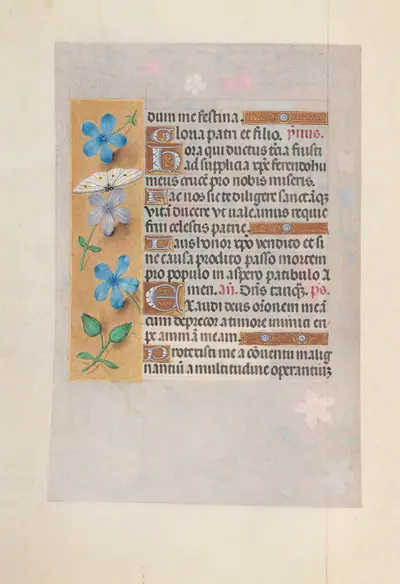 dum me festina.
Gloria patri et filio. ẏmus.
Hora qui ductus tercia fuisti
ad supplicia xpe ferendo hu
meus crucē pro nobis miseris.
Fac nos sic te diligere sanctāqȝ
vitā ducere vt valeamus requie
frui celestis patrie.
Laus honor xpo vendito et si
ne causa prodito passo mortem
pro populo in aspero patibulo a
men. añ. Dñs tanqȝ. ps.
Exaudi deus orōnem meā
cum deprecor a timore inimici eri
pe animā meam.
Protexisti me a cōuentu malig
nantiū a multitudine operantiuȝ